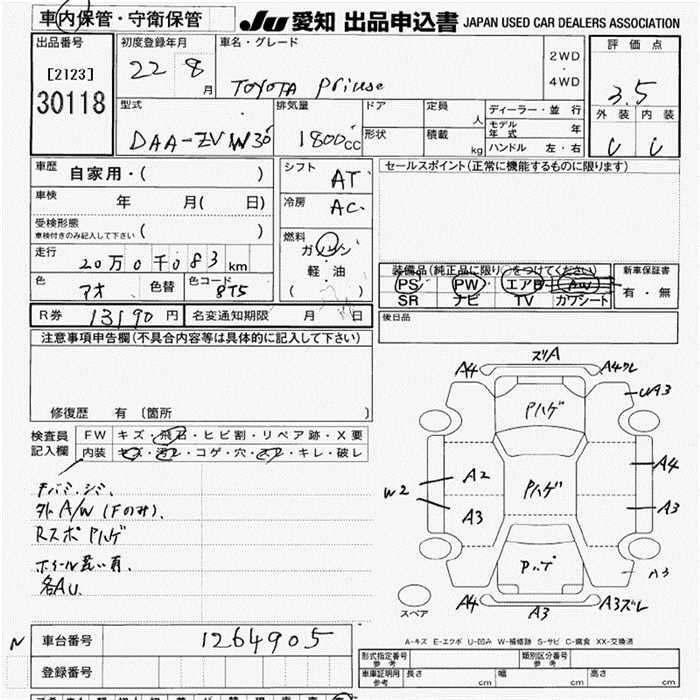 車内保管・守衛保管 JU 愛知 出品申込書 JAPAN USED CAR DEALERS ASSOCIATION
出品番号 初度登録年月 車名・グレード 2WD・4WD 評価点
[2123] 22 8月 TOYOTA Priuse 3.5
30118 型式 排気量 ドア 定員 人 ディーラー・並行 外装 内装
DAA-ZVW30 1800cc 形状 積載 kg モデル年式 年
ハンドル 左・右
車歴 自家用・( ) シフト AT セールスポイント(正常に機能するものに限ります)
車検 年 月( 日) 冷房 AC
受検形態 車検付きのみ記入して下さい ( )
燃料 ガソリン・軽・油 ( )
走行 20万0千083km
装備品(純正品に限り○をつけてください) 新車保証書
色 アオ 色替 色コード 8T5 PS PW エアB AW 有・無
SR ナビ TV カワシート
R券 13190円 名変通知期限 月 日 後日品
注意事項申告欄(不具合内容等は具体的に記入して下さい)
修復歴 有 (箇所 )
検査員記入欄 FW キズ・飛石・ヒビ割・リペア跡・X要
内装 キズ・汚レ・コゲ・穴・スレ・キレ・破レ
外A/W(Fのみ)、
RスポPハゲ
各AU.
ズリA
A4 A4
UA3
Pハゲ
A2 A4
W2 Pハゲ
A3 A3
A4 A3 A3ズレ
スペア
A-キズ E-エクボ U-凹み W-補修跡 S-サビ C-腐食 XX-交換済
N 車台番号 1264905
登録番号
形式指定番号 参考 類別区分番号 参考
車庫証明用 参考 長さ cm 幅 cm 高さ cm